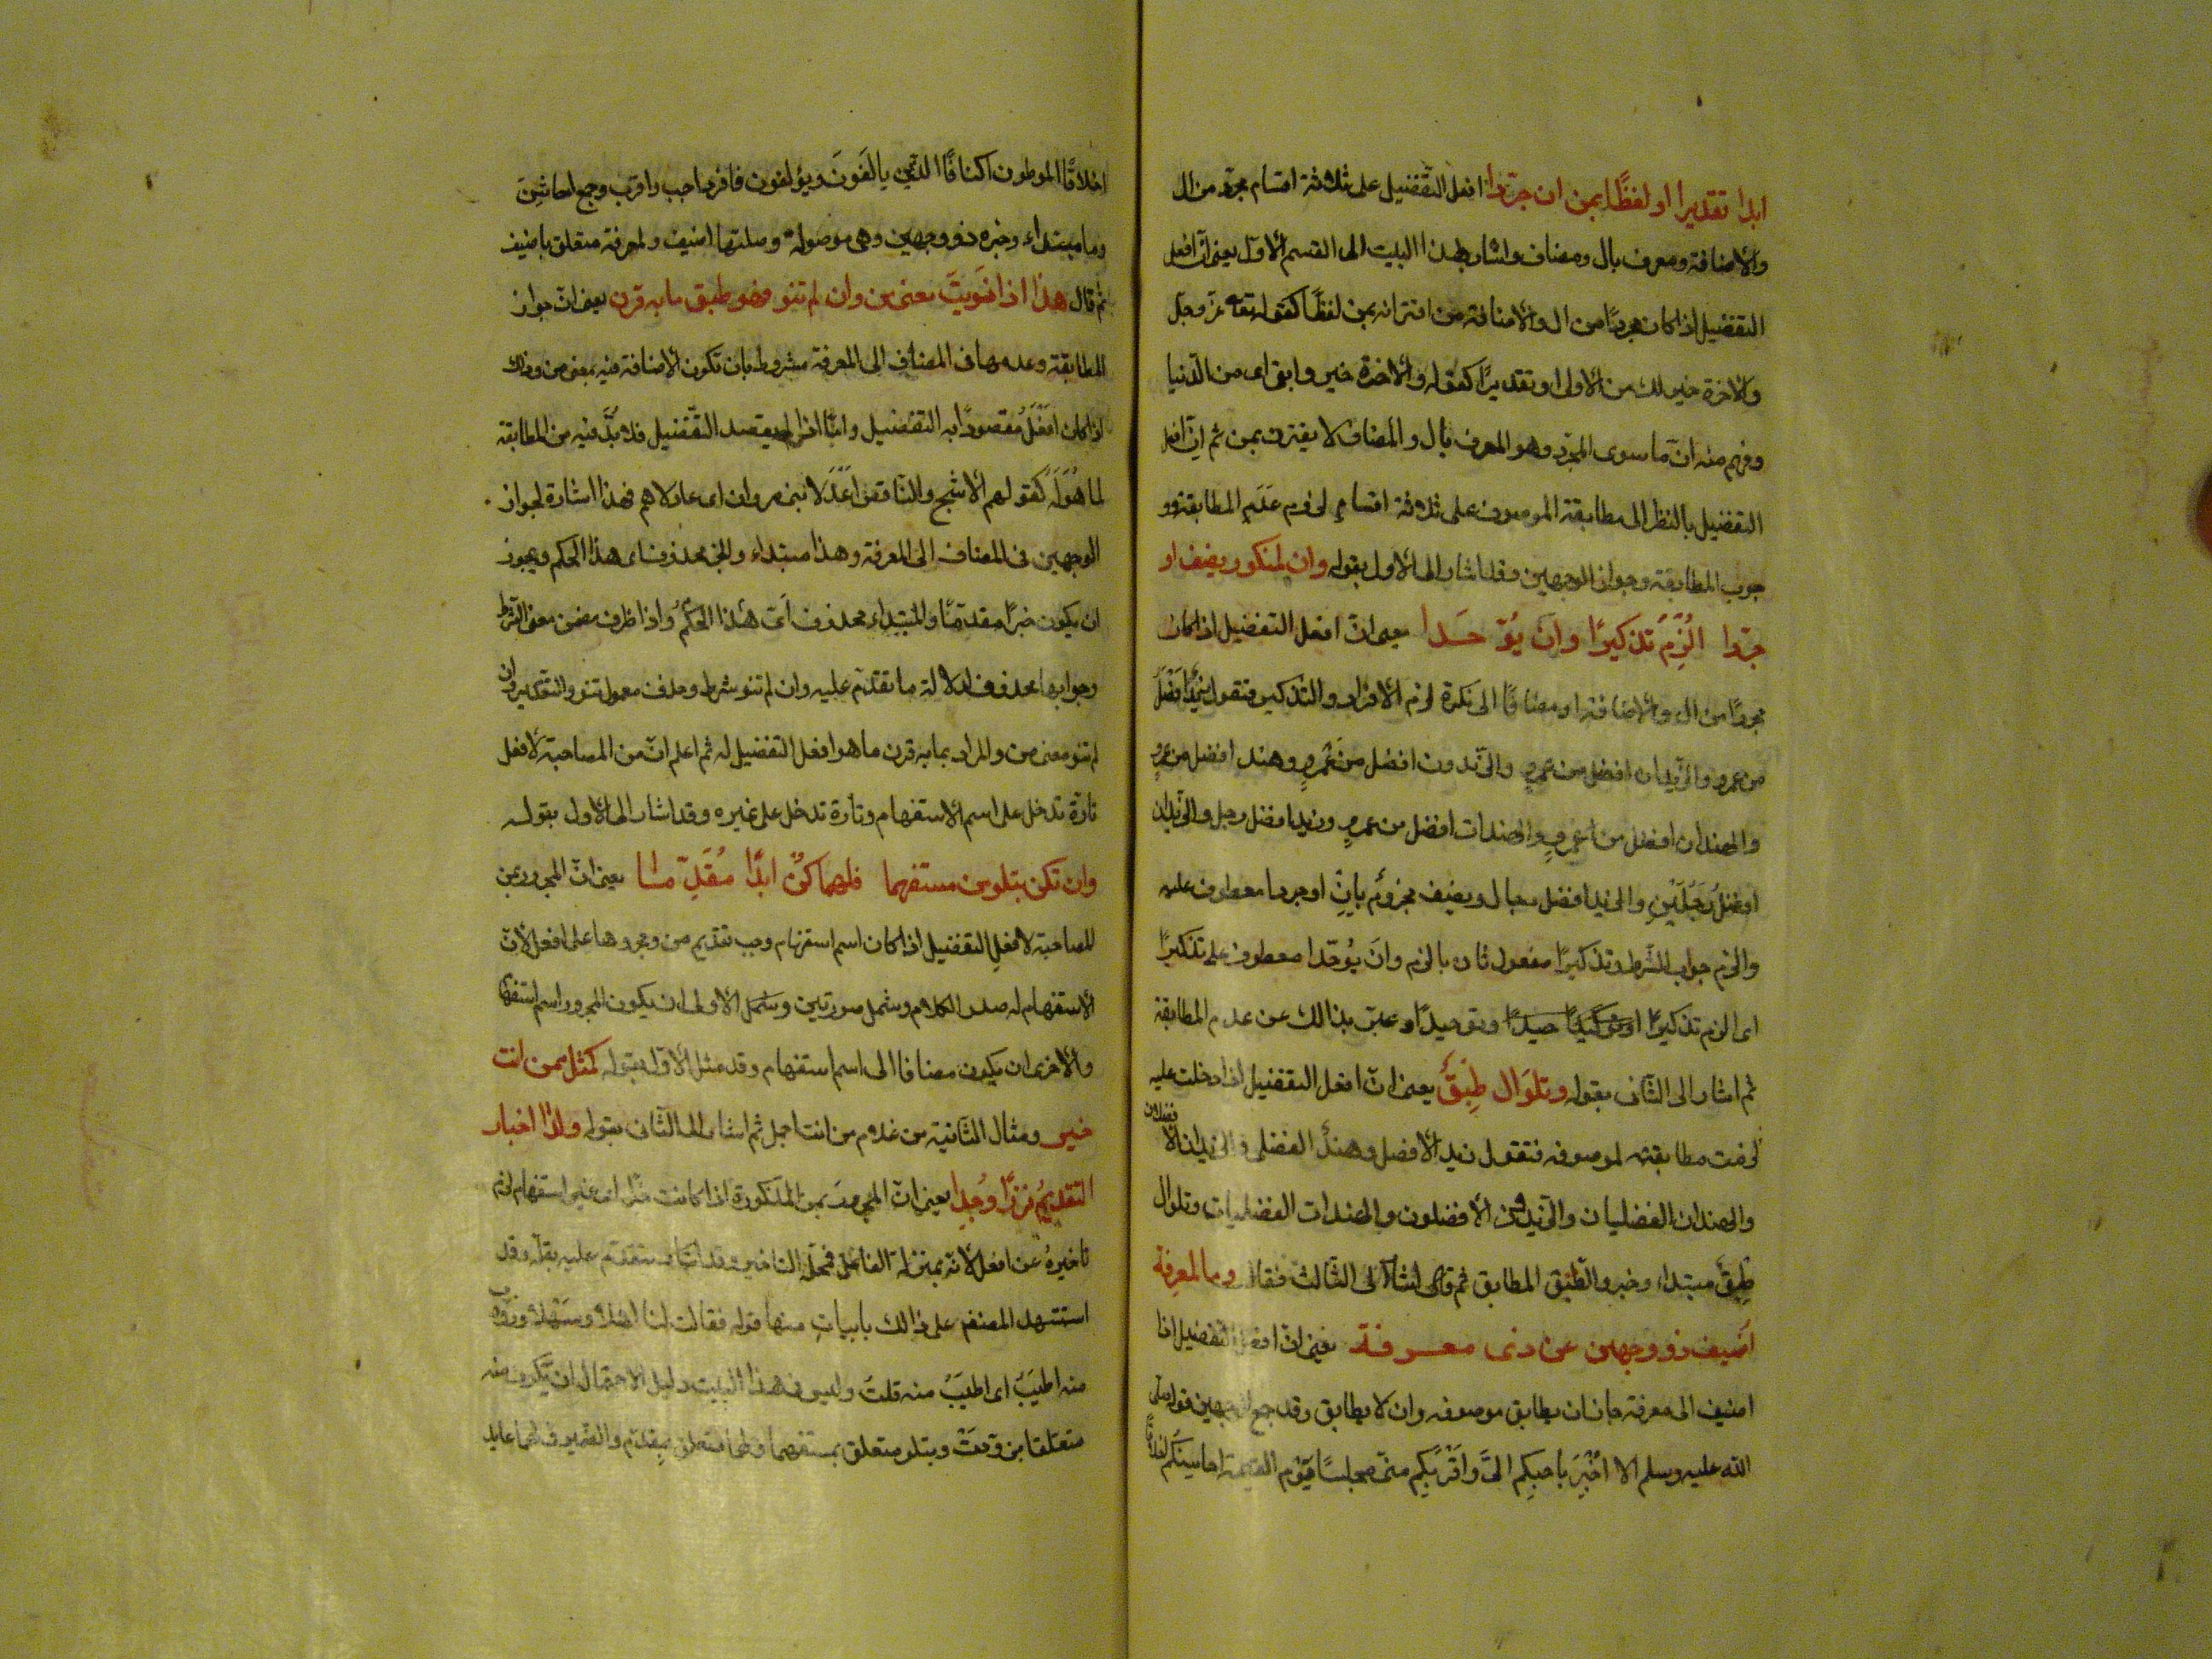 ابدا تقديرا او لفظًا بمن ان جرّدا افعل التفضيل على ثلاثة اقسام مجرّد من ال
والاضافة ومعرف بال ومضاف واشار بهذا البيت الى القسم الاوّل يعنى انّ افعل
التفضيل اذا كان مجردًا من ال والاضافة من اقترانه بمن لفظًا كقوله تعا عزّ وجلّ
والاخرة خير لك من الاولى او تقديرًا كقوله والاخرة خير وابقى اى من الدّنيا
وفهم منه انّ ما سوى المجرّد وهو المعرف بال والمضاف لا يقترن بمن ثم انّ افعل
التفضيل بالنظر الى مطابقة الموصوف على ثلاثة اقسام لزوم عدم المطابقة وو
جوب المطابقة وجواز الوجهين وقد اشار الى الاول بقوله وان لمنكور يضف او
جرّدا الُزِمَ تذكيرًا وان يُوَحَّدا يعنى انّ افعل التفضيل اذا كان
مجردًا من ال والاضافة او مضافًا الى نكرة لزم الافراد والتذكير فتقول زيدٌ افضل
من عمرو والزّيدان افضل من عمرو والزّيدون افضل من عمرٍو وهند افضل من عمرٍو
والهندان افضل من عمرٍو والهندات افضل من عمرٍو وزيد افضل رجل والزّيدان
افضلُ رَجُلَيْنِ والزيد افضل رجال ويضف مجزوم بانْ او جردا معطوف عليه
والزم جواب الشّرط وتذكيرًا مفعول ثان بالزم وان يُوحّدا معطوف على تذكيرًا
اى الزم تذكيرًا وتوحيدًا وعبّر بذالك عن عدم المطابقة
ثم اشار الى الثّانى بقوله وتلوَ ال طِبْقٌ يعنى انّ افعل التفضيل اذا دخلت عليه
لزمت مطابقته لموصوفه فتقول زيد الافضل وهندٌ الفضلى والزيدان الافضلان
والهندان الفضليان والزّيدون الافضلون والهندات الفضليات وتلو ال
طِبقٌ مبتداء وخبر والطّبق المطابق ثم اشار الى الثّالث فقال وما لمعرفة
اُضيف ذو وجهين عن ذى معرفة يعنى انّ افعل التفضيل اذا
اضيف الى معرفة جاز ان يطابق موصوفه وان لا يطابق وقد جمع الوجهين قوله صلّى
الله عليه وسلم الا اخبركم باحبّكم الىّ واقربكم منّى مجلسًا يوم القيمة احاسنكم اخلاقًا
اخلاقًا الموطون اكنافًا الذّين يالفونَ ويؤلفون فافرد احب واقرب وجمع احاسن
وما مبتداء وخبره ذو وجهين وهى موصولة وصلتها اضيف ولمعرفة متعلق باضيف
ثم قال هذا اذا نَوَيتَ معنى من وان لم تنو فهو طبق ما به قرن يعنى انّ جواز
المطابقة وعدمها فى المضاف الى المعرفة مشروط بان تكون الاضافة فيه بمعنى من وذلك
اذا كان افعل مقصودًا به التفضيل وامّا اذا لم يقصد التّفضيل فلا بدَّ فيه من المطابقة
لما هُوَلَهُ كقولهم الاشج والنّاقص اعدلا بنى مروان اى عادلاهم فهذا اشارة لجواز
الوجهين فى المضاف الى المعرفة وهذا مبتداء والخبر محذوف اى هذا الحكم ويجوز
ان يكون خبرًا مقدمًا والمبتداء محذوف اَى هٰذا الحُكمُ واذا ظرف مضمن معنى الشّرط
وجوابها محذوف لدلالة ما تقدّم عليه وان لم تنو شرط وحذف معمول تنو والتقدير وان
لم تنو معنى من والمراد بما به قرن ما هو افعل التفضيل له ثم اعلم انّ من المصاحبة لافعل
تارة تدخل على اسم الاستفهام وتارة تدخل على غيره وقد اشار الى الاول بقوله
وان تكن بتلو من مستفهما فلهما كن ابدًا مُقَدّما يعنى انّ المجرور بمن
المصاحبة لافعل التفضيل اذا كان اسم استفهام وجب تقديم من ومجرورها على افعل لانّ
الاستفهام له صدر الكلام وشمل صورتين وشمل الاولى ان يكون المجرور اسم استفهام
والاخرى ان يكون مضافا الى اسم استفهام وقد مثل الاوّل بقوله كمثل ممن انت
خير ومثال الثّانية من غلام من انت اجمل ثم اشار الى الثّانى بقوله ولدا اخبار
التقديمُ نزرًا وُجِدا يعنى انّ المجرور بمن المذكورة اذا كانت خبرًا اى غير استفهام لزم
تاخيرهُ عن افعل لانّه بمنزلة الفاعل فمحلّه التاخير وقد يتقدّم عليه بقلّه وقد
استشهد المصنف على ذالك بابيات منها قوله فقالت لنا اهلاً وسهلاً وزوّدت
منه اطيَبُ اى اطيَبُ منه قلتَ وليس فى هذا البيت دليل لاحتمال ان يكون منه
متعلقا بزوّدتْ وبتلو متعلق بمستفهما ولهما متعلق بمقدّم والضمير فى لهما عايد